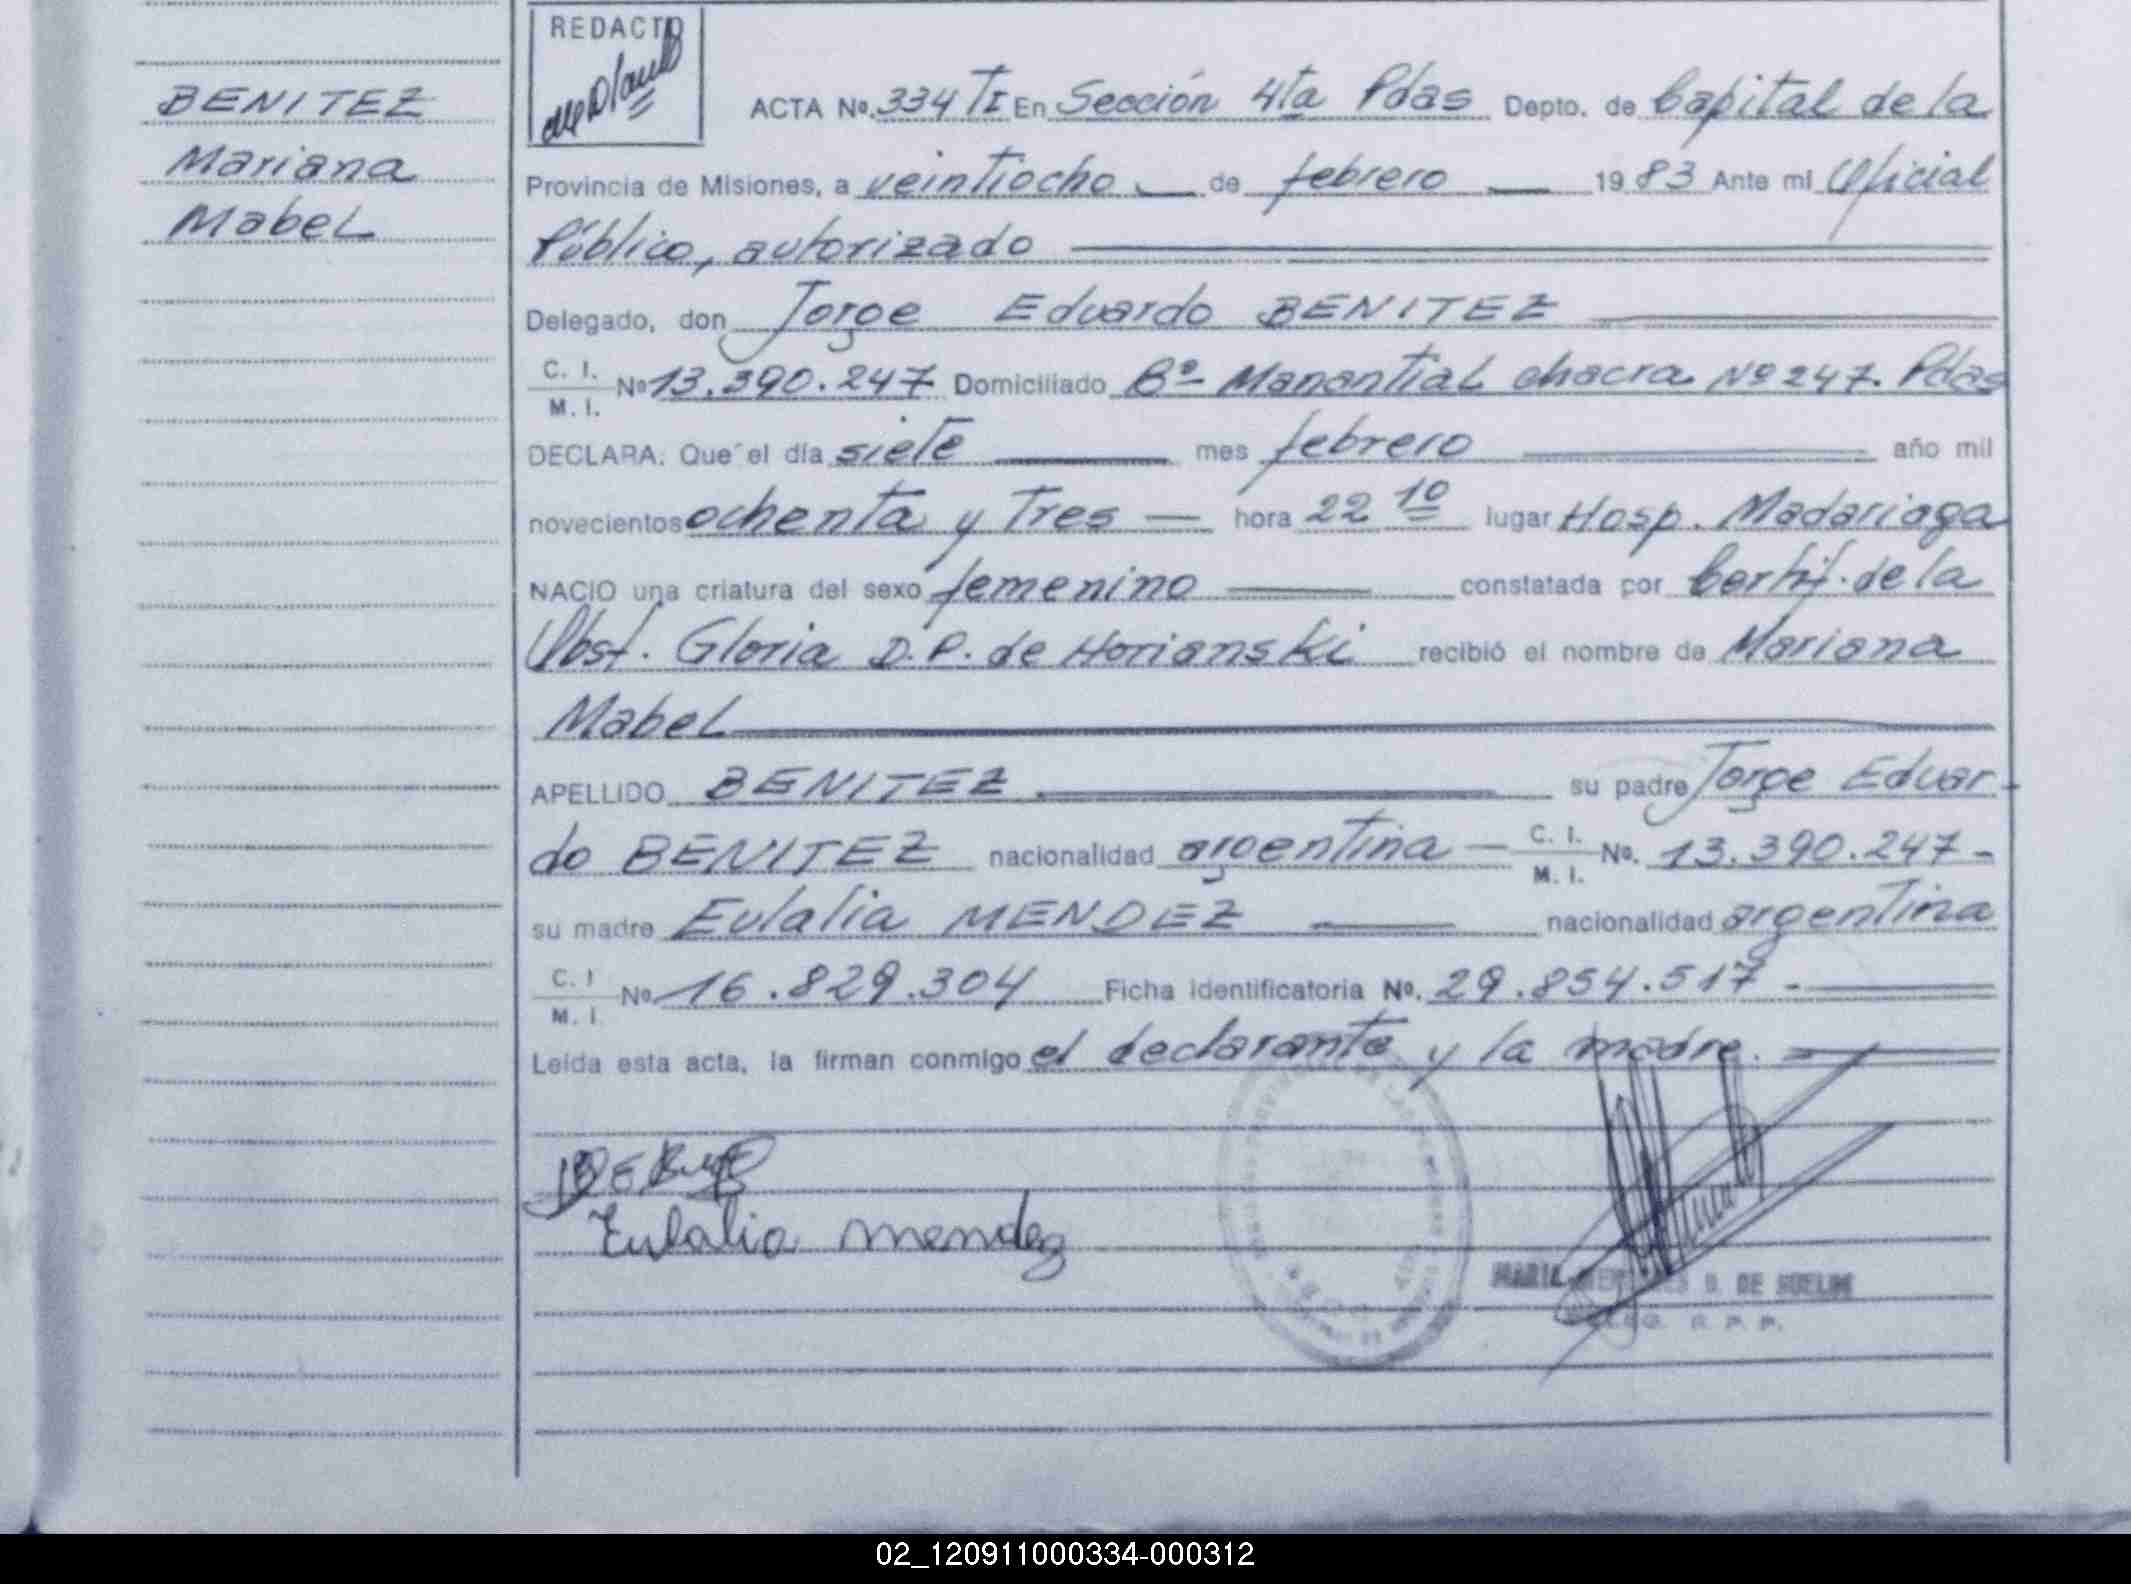 BENITEZ
Mariana
Mabel
REDACTO
ACTA Nº. 334 TI En Sección 4ta Pdas Depto. de Capital de la
Provincia de Misiones, a veintiocho de febrero 1983 Ante mi Oficial
Público, autorizado
Delegado, don Jorge Eduardo BENITEZ
C. I.
M. I. Nº 13.390.247 Domiciliado Bº Manantial chacra Nº 247. Pdas
DECLARA: Que el día siete mes febrero año mil
novecientos ochenta y Tres hora 22 10 lugar Hosp. Madariaga
NACIO una criatura del sexo femenino constatada por Certif. de la
Obst. Gloria D.P. de Horianski recibió el nombre de Mariana
Mabel
APELLIDO BENITEZ su padre Jorge Eduar-
do BENITEZ nacionalidad argentina C. I. M. I. Nº. 13.390.247-
su madre Eulalia MENDEZ nacionalidad argentina
C. I M. I. Nº 16.829.304 Ficha Identificatoria Nº. 29.854.517.-
Leída esta acta, la firman conmigo el declarante y la madre.
Eulalia mendez
DE
R. P. P.
02_120911000334-000312